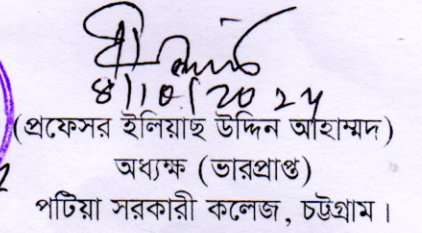 8/10/2024
(প্রফেসর ইলিয়াছ উদ্দিন আহাম্মদ)
অধ্যক্ষ (ভারপ্রাপ্ত)
পটিয়া সরকারী কলেজ, চট্টগ্রাম।